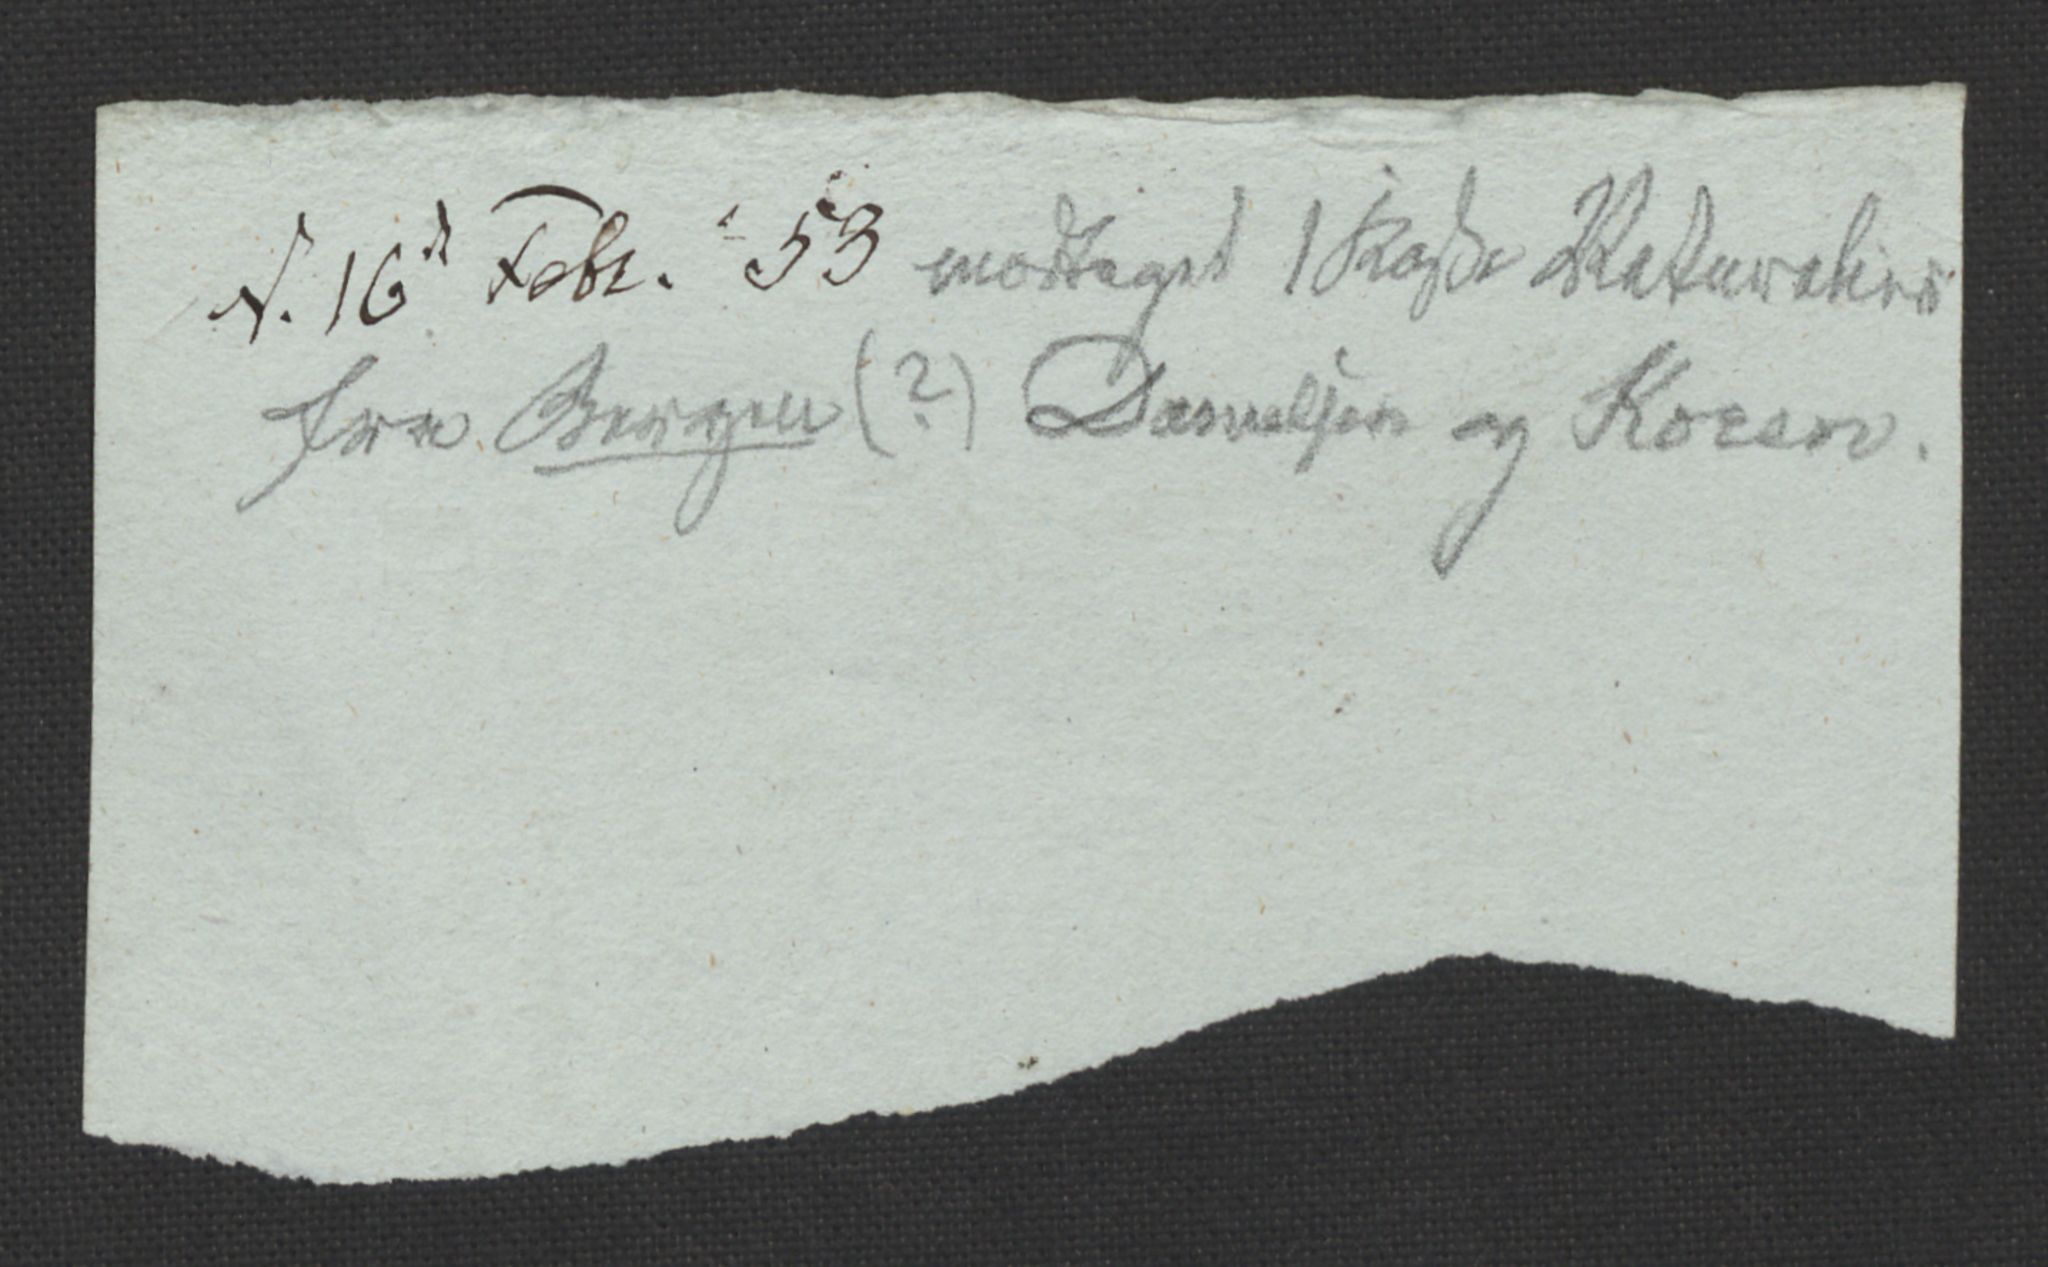 d. 16d Febr. 53 modtaget 1 Kasse Naturalier
fra Bergen (?) Danielsen og Koren.